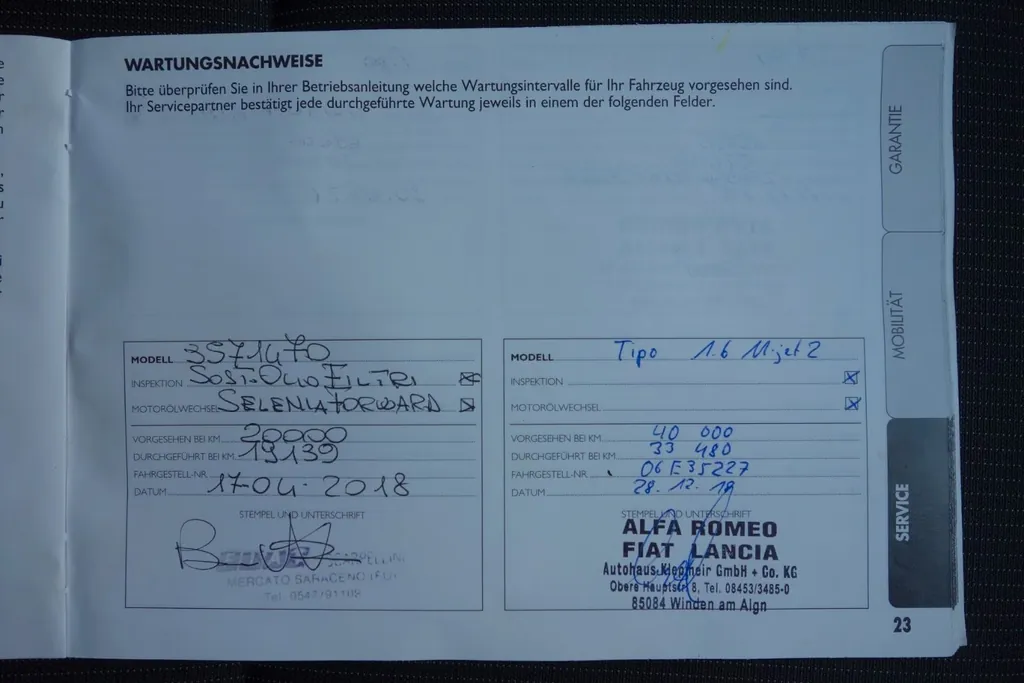 WARTUNGSNACHWEISE
Bitte überprüfen Sie in Ihrer Betriebsanleitung welche Wartungsintervalle für Ihr Fahrzeug vorgesehen sind.
Ihr Servicepartner bestätigt jede durchgeführte Wartung jeweils in einem der folgenden Felder.
MODELL 3571470
INSPEKTION SOST. OLIO FILTRI
MOTORÖLWECHSEL SELENIA FORWARD
VORGESEHEN BEI KM 20000
DURCHGEFÜHRT BEI KM 19139
FAHRGESTELL-NR.
DATUM 17-04-2018
STEMPEL UND UNTERSCHRIFT
MERCATO SARACENO
Tel. 0547/91108
MODELL Tipo 1.6 M.jet 2
INSPEKTION
MOTORÖLWECHSEL
VORGESEHEN BEI KM 40 000
DURCHGEFÜHRT BEI KM 33 480
FAHRGESTELL-NR. 06E35227
DATUM 28.12.18
STEMPEL UND UNTERSCHRIFT
ALFA ROMEO
FIAT LANCIA
Autohaus Klepmeir GmbH + Co. KG
Obere Hauptstr. 8, Tel. 08453/3485-0
85084 Winden am Aign
GARANTIE
MOBILITÄT
SERVICE
23